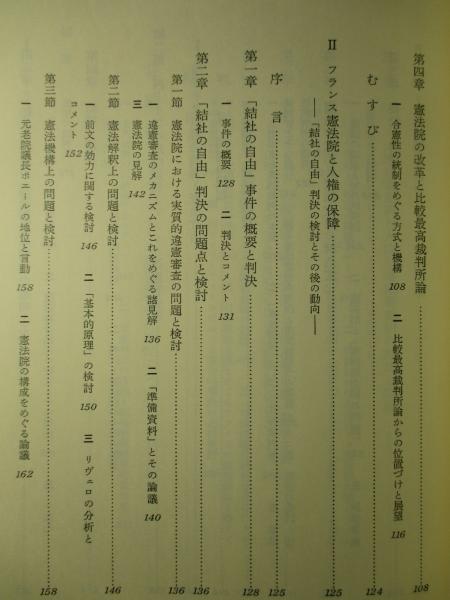 第四章　憲法院の改革と比較最高裁判所論……108
一　合憲性の統制をめぐる方式と機構　108　二　比較最高裁判所論からの位置づけと展望　116
むすび……124
Ⅱ　フランス憲法院と人権の保障……125
——「結社の自由」判決の検討とその後の動向——
序言……125
第一章　「結社の自由」事件の概要と判決……128
一　事件の概要　128　二　判決とコメント　131
第二章　「結社の自由」判決の問題点と検討……136
第一節　憲法院における実質的違憲審査の問題と検討……136
一　違憲審査のメカニズムとこれをめぐる諸見解　136　二　「準備資料」とその論議　140
三　憲法院の見解　142
第二節　憲法解釈上の問題と検討……146
一　前文の効力に関する検討　146　二　「基本的原理」の検討　150　三　リヴェロの分析と
コメント　152
第三節　憲法機構上の問題と検討……158
一　元老院議長ポエールの地位と言動　158　二　憲法院の構成をめぐる論議　162